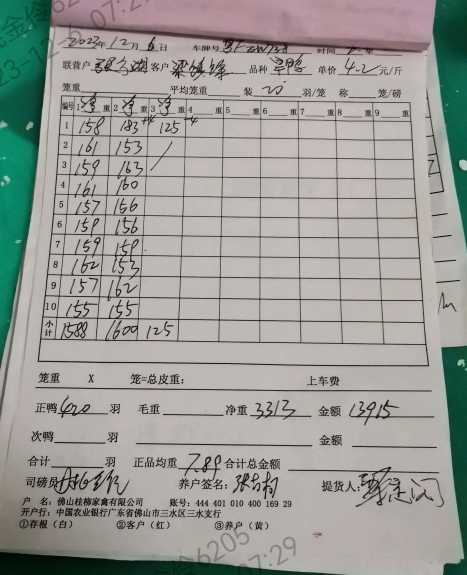 2023年12月6日 车牌号 时间
联营户 客户 品种 单价 4.2 元/斤
笼重 平均笼重 装 20 羽/笼 称 笼/磅
编号 1 净 重 2 净 重 3 净 重 4 重 5 重 6 重 7 重 8 重 9 重
1 158 183 +4 125 -4
2 161 153
3 159 163
4 161 160
5 157 156
6 159 156
7 159 159
8 162 153
9 157 162
10 155 155
小计 1588 1600 125
笼重 X 笼=总皮重: 上车费
正鸭 420 羽 毛重 净重 3313 金额 13915
次鸭 羽 金额
合计 羽 正品均重 7.89 合计总金额
司磅员 养户签名: 提货人:
户 名: 佛山桂柳家禽有限公司 账号: 444 401 010 400 169 29
开户行: 中国农业银行广东省佛山市三水区三水支行
①存根(白) ②客户(红) ③养户(黄)